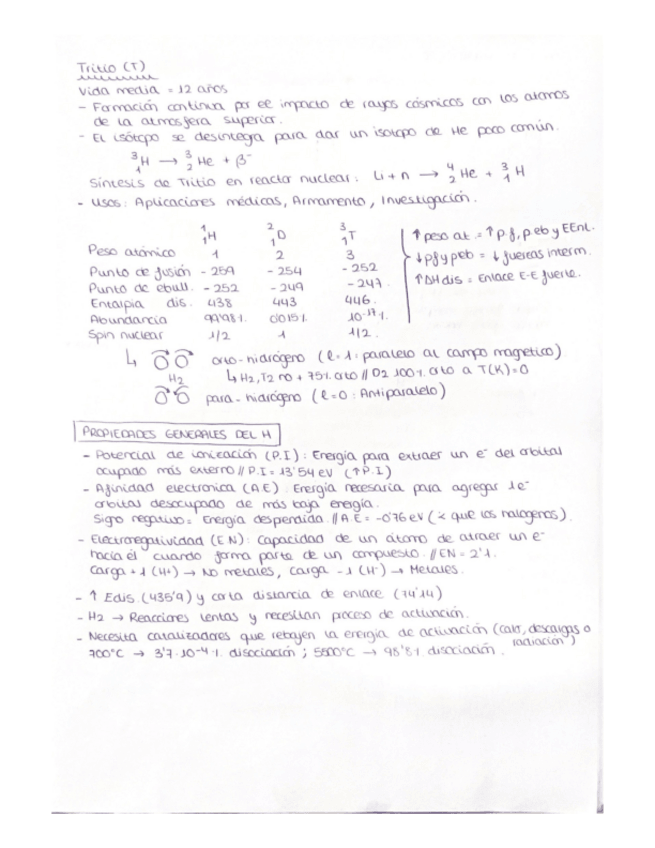 Tritio (T)
Vida media = 12 años
- Formación continua por el impacto de rayos cósmicos con los átomos
de la atmosfera superior.
- El isótopo se desintegra para dar un isotopo de He poco común.
³₁H → ³₂He + β⁻
Síntesis de Tritio en reactor nuclear: Li + n → ⁴₂He + ³₁H
- Usos: Aplicaciones médicas, Armamento, Investigación.
¹₁H ²₁D ³₁T
Peso atómico 1 2 3
Punto de fusión -259 -254 -252
Punto de ebull. -252 -249 -247
Entalpia dis. 438 443 446.
Abundancia 99'98% 0'015% 10⁻¹⁷%
Spin nuclear 1/2 1 1/2.
↑ peso at. = ↑ p.f, p.eb y EEnl.
↓ pf y peb = ↓ fuerzas interm.
↑ ΔH dis = Enlace E-E fuerte.
↳ orto-hidrógeno (l = 1: paralelo al campo magnético)
H2 ↳ H2, T2 no + 75% orto // D2 100% orto a T(K)=0
para-hidrógeno (l=0: Antiparalelo)
PROPIEDADES GENERALES DEL H
- Potencial de ionización (P.I): Energía para extraer un e⁻ del orbital
ocupado más externo // P.I = 13'54 eV (↑P.I)
- Afinidad electronica (A.E): Energía necesaria para agregar 1e⁻
orbital desocupado de más baja energía.
Signo negativo = Energía despendida // A.E = -0'76 eV (< que los halogenos).
- Electronegatividad (E.N): Capacidad de un átomo de atraer un e⁻
hacia él cuando forma parte de un compuesto. // EN = 2'1.
Carga +1 (H+) → No metales, Carga -1 (H⁻) → Metales.
- ↑ Edis. (435'9) y corta distancia de enlace (74'14)
- H2 → Reacciones lentas y necesitan proceso de activación.
- Necesita catalizadores que rebajen la energía de activación (calor, descargas o
radiación)
700°C → 3'7·10⁻⁴% disociación; 5500°C → 98'8% disociación.